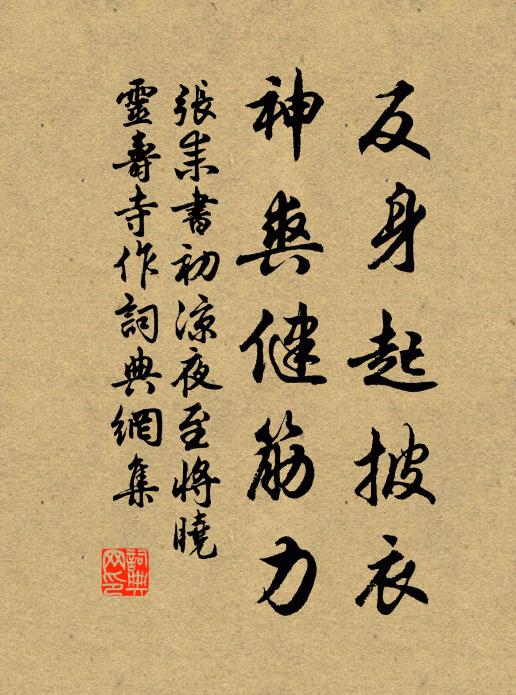 反身起披衣
神爽健筋力
張耒書初涼夜至將曉
靈壽寺作詞典網集
詞典
网印